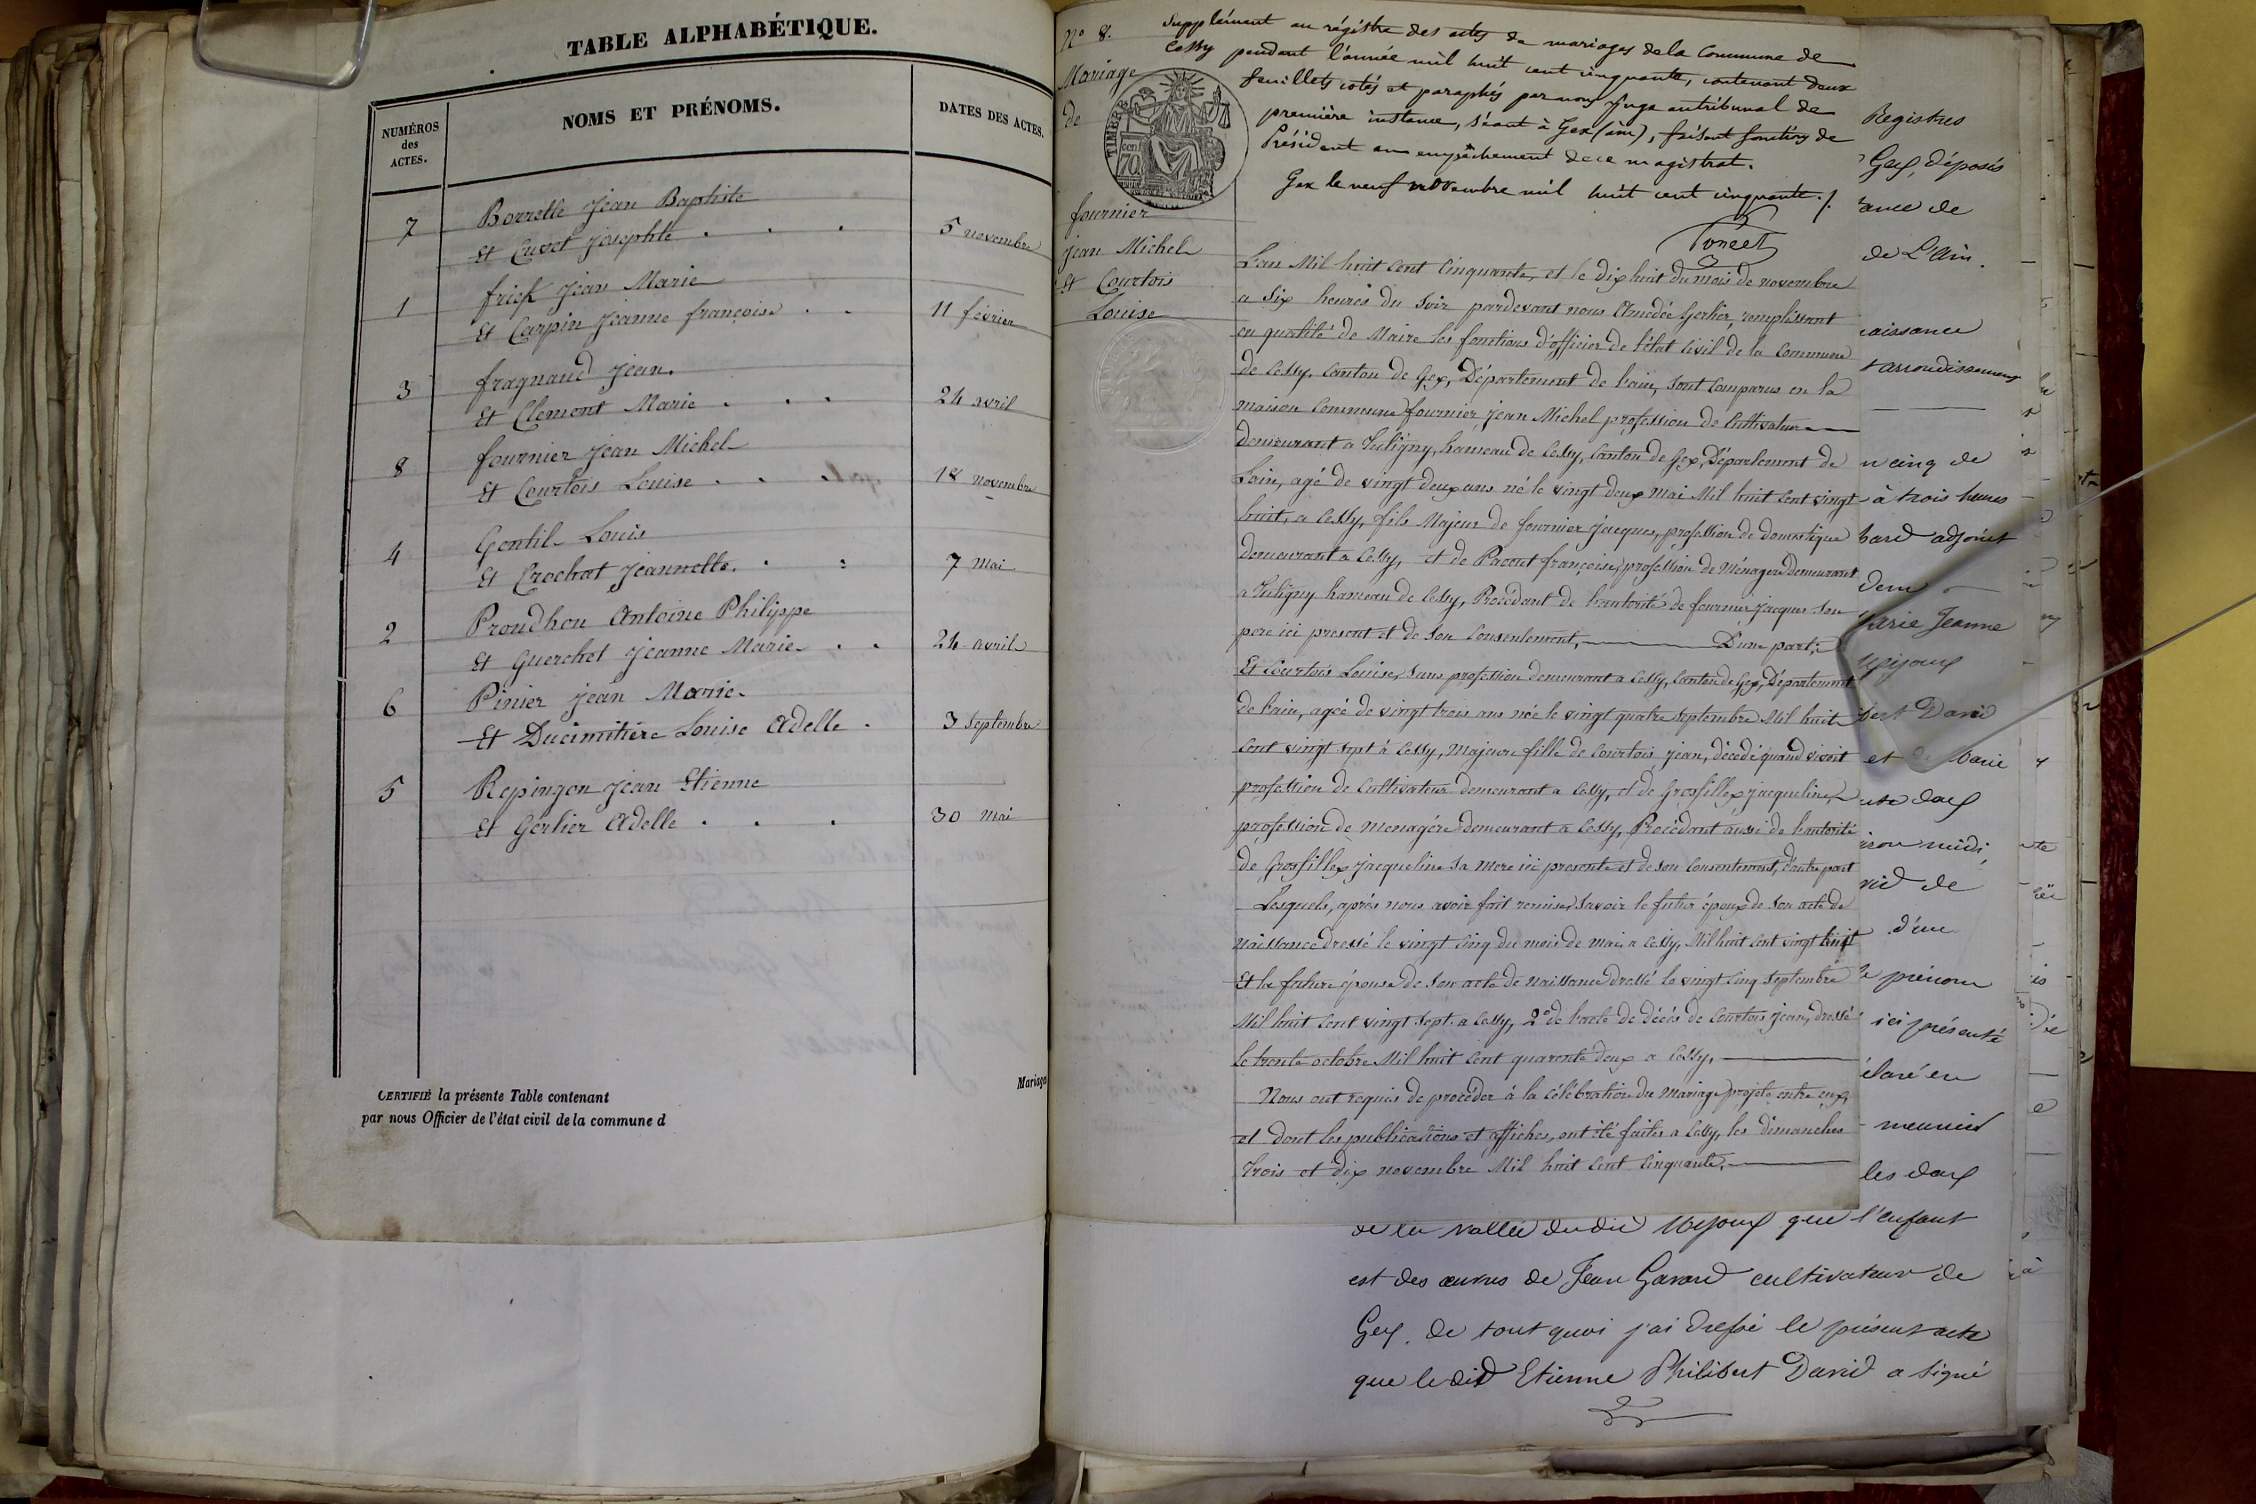 TABLE ALPHABÉTIQUE.
NUMÉROS des ACTES.
NOMS ET PRÉNOMS.
DATES DES ACTES.
7 Borrelle Jean Baptiste
Et Cuvet Josephte . . . 5 novembre
1 frick Jean Marie
Et Carpin Jeanne françoise . . 11 février
3 fragnaud Jean.
Et Clement Marie . . . 24 avril
8 fournier Jean Michel
Et Courtois Louise . . . 18 novembre
4 Gentil Louis
Et Crochat Jeannette. . . 7 mai
2 Proudhon Antoine Philippe
Et Guerchet Jeanne Marie . . 24 avril
6 Pinier Jean Marie
Et Ducimitière Louise Adelle . 3 Septembre
5 Repingon Jean Etienne
Et Gerlier Adelle . . . 30 mai
Mariage
CERTIFIÉ la présente Table contenant
par nous Officier de l'état civil de la commune d
N° 8.
Mariage
de
fournier
Jean Michel
Et Courtois
Louise
TIMBRE
70
Supplément au régistre des actes de mariages de la Commune de
Cessy pendant l'année mil huit cent cinquante, contenant deux
feuillets cotés et paraphés par nous Juge au tribunal de
première instance, séant à Gex (ain), faisant fonctions de
Président en empêchement de ce magistrat.
Gex le neuf novembre mil huit cent cinquante./.
Poncet
L'an Mil huit Cent Cinquante, et le dix huit du mois de novembre
a Six heures du Soir pardevant nous Amédée Gerlier, remplissant
en qualité de Maire les fonctions d'officier de l'état Civil de la Commune
de Cessy, Canton de Gex, Département de l'ain, Sont Comparus en la
maison Commune fournier Jean Michel profession de Cultivateur
demeurant a Tutigny, hameau de Cessy, Canton de Gex, Département de
Lain, agé de vingt deux ans né le vingt deux Mai Mil huit Cent vingt
huit, a Cessy, fils Majeur de fournier Jacques, profession de domestique
demeurant a Cessy, et de Pacout françoise, profession de Ménagère demeurant
a Tutigny hameau de Cessy, Procédant de l'autorité de fournier Jacques Son
pere ici present et de Son Consentement, D'une part;
Et Courtois Louise, Sans profession demeurant a Cessy, Canton de Gex, Département
de l'ain, agée de vingt trois ans née le vingt quatre Septembre Mil huit
Cent vingt Sept à Cessy, Majeure fille de Courtois Jean, décédé quand vivait
profession de Cultivateur demeurant a Cessy, et de Grosfillex Jacqueline
profession de menagère demeurant a Cessy, Procédant aussi de l'autorité
de Grosfillex Jacqueline Sa Mere ici presente et de Son Consentement, d'autre part
Lesquels, après nous avoir fait remise, Savoir le futur époux de Son acte de
Naissance dressé le vingt Cinq du mois de mai, a Cessy, Mil huit Cent vingt huit
Et la future épouse de Son acte de Naissance dressé le vingt Cinq Septembre
Mil huit Cent vingt Sept a Cessy, 2° de l'acte de décès de Courtois Jean, dressé
le trente octobre Mil huit Cent quarante deux a Cessy,
Nous ont requis de procéder à la Célébration du Mariage projeté entre eux,
et dont les publications et affiches, ont été faites a Cessy, les dimanches
trois et dix novembre Mil huit Cent Cinquante,
Registres
Gex, déposés
de
de L'Ain.
arrondissement
cinq de
à trois heures
adjoint
Jeanne
David
et de
midi,
de
d'un
prénom
ici présenté
meunier
les
de la vallée dudit que l'enfant
est des œuvres de Jean Gavard cultivateur de
Gex. de tout quoi j'ai dressé le présent acte
que ledit Etienne Philibert David a signé